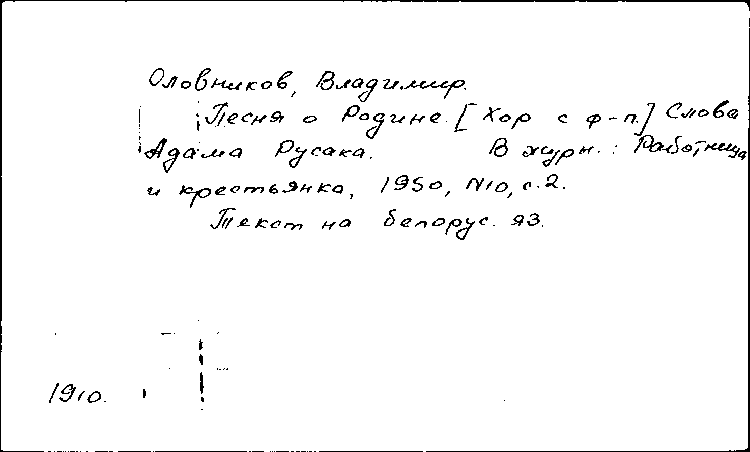 Оловников, Владимир.
Песня о Родине. [Хор с ф-п.] Слова
Адама Русака. В журн.: Работница
и крестьянка, 1950, N10, с.2.
Текст на белорус. яз.
1910.